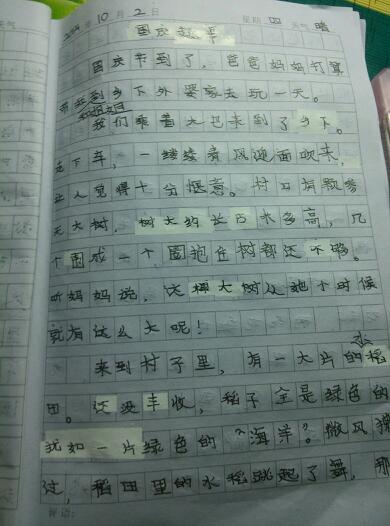 2014年10月2日 星期四 天气晴
国庆趣事
国庆节到了，爸爸妈妈打算
带我和姐姐到乡下外婆家去玩一天。
我们乘着大巴来到了乡下。
走下车，一缕缕青风迎面吹来，
让人觉得十分惬意。村口有颗参
天大树，树大约长百米多高，几
个围成一个圈抱住树都还不够。
听妈妈说，这棵大树从她小时候
就有这么大呢！
来到村子里，有一大片的水稻
田。还没丰收，稻子全是绿色的
犹如一片绿色的“海洋”。微风
过，稻田里的水稻跳起了舞，那
评语：